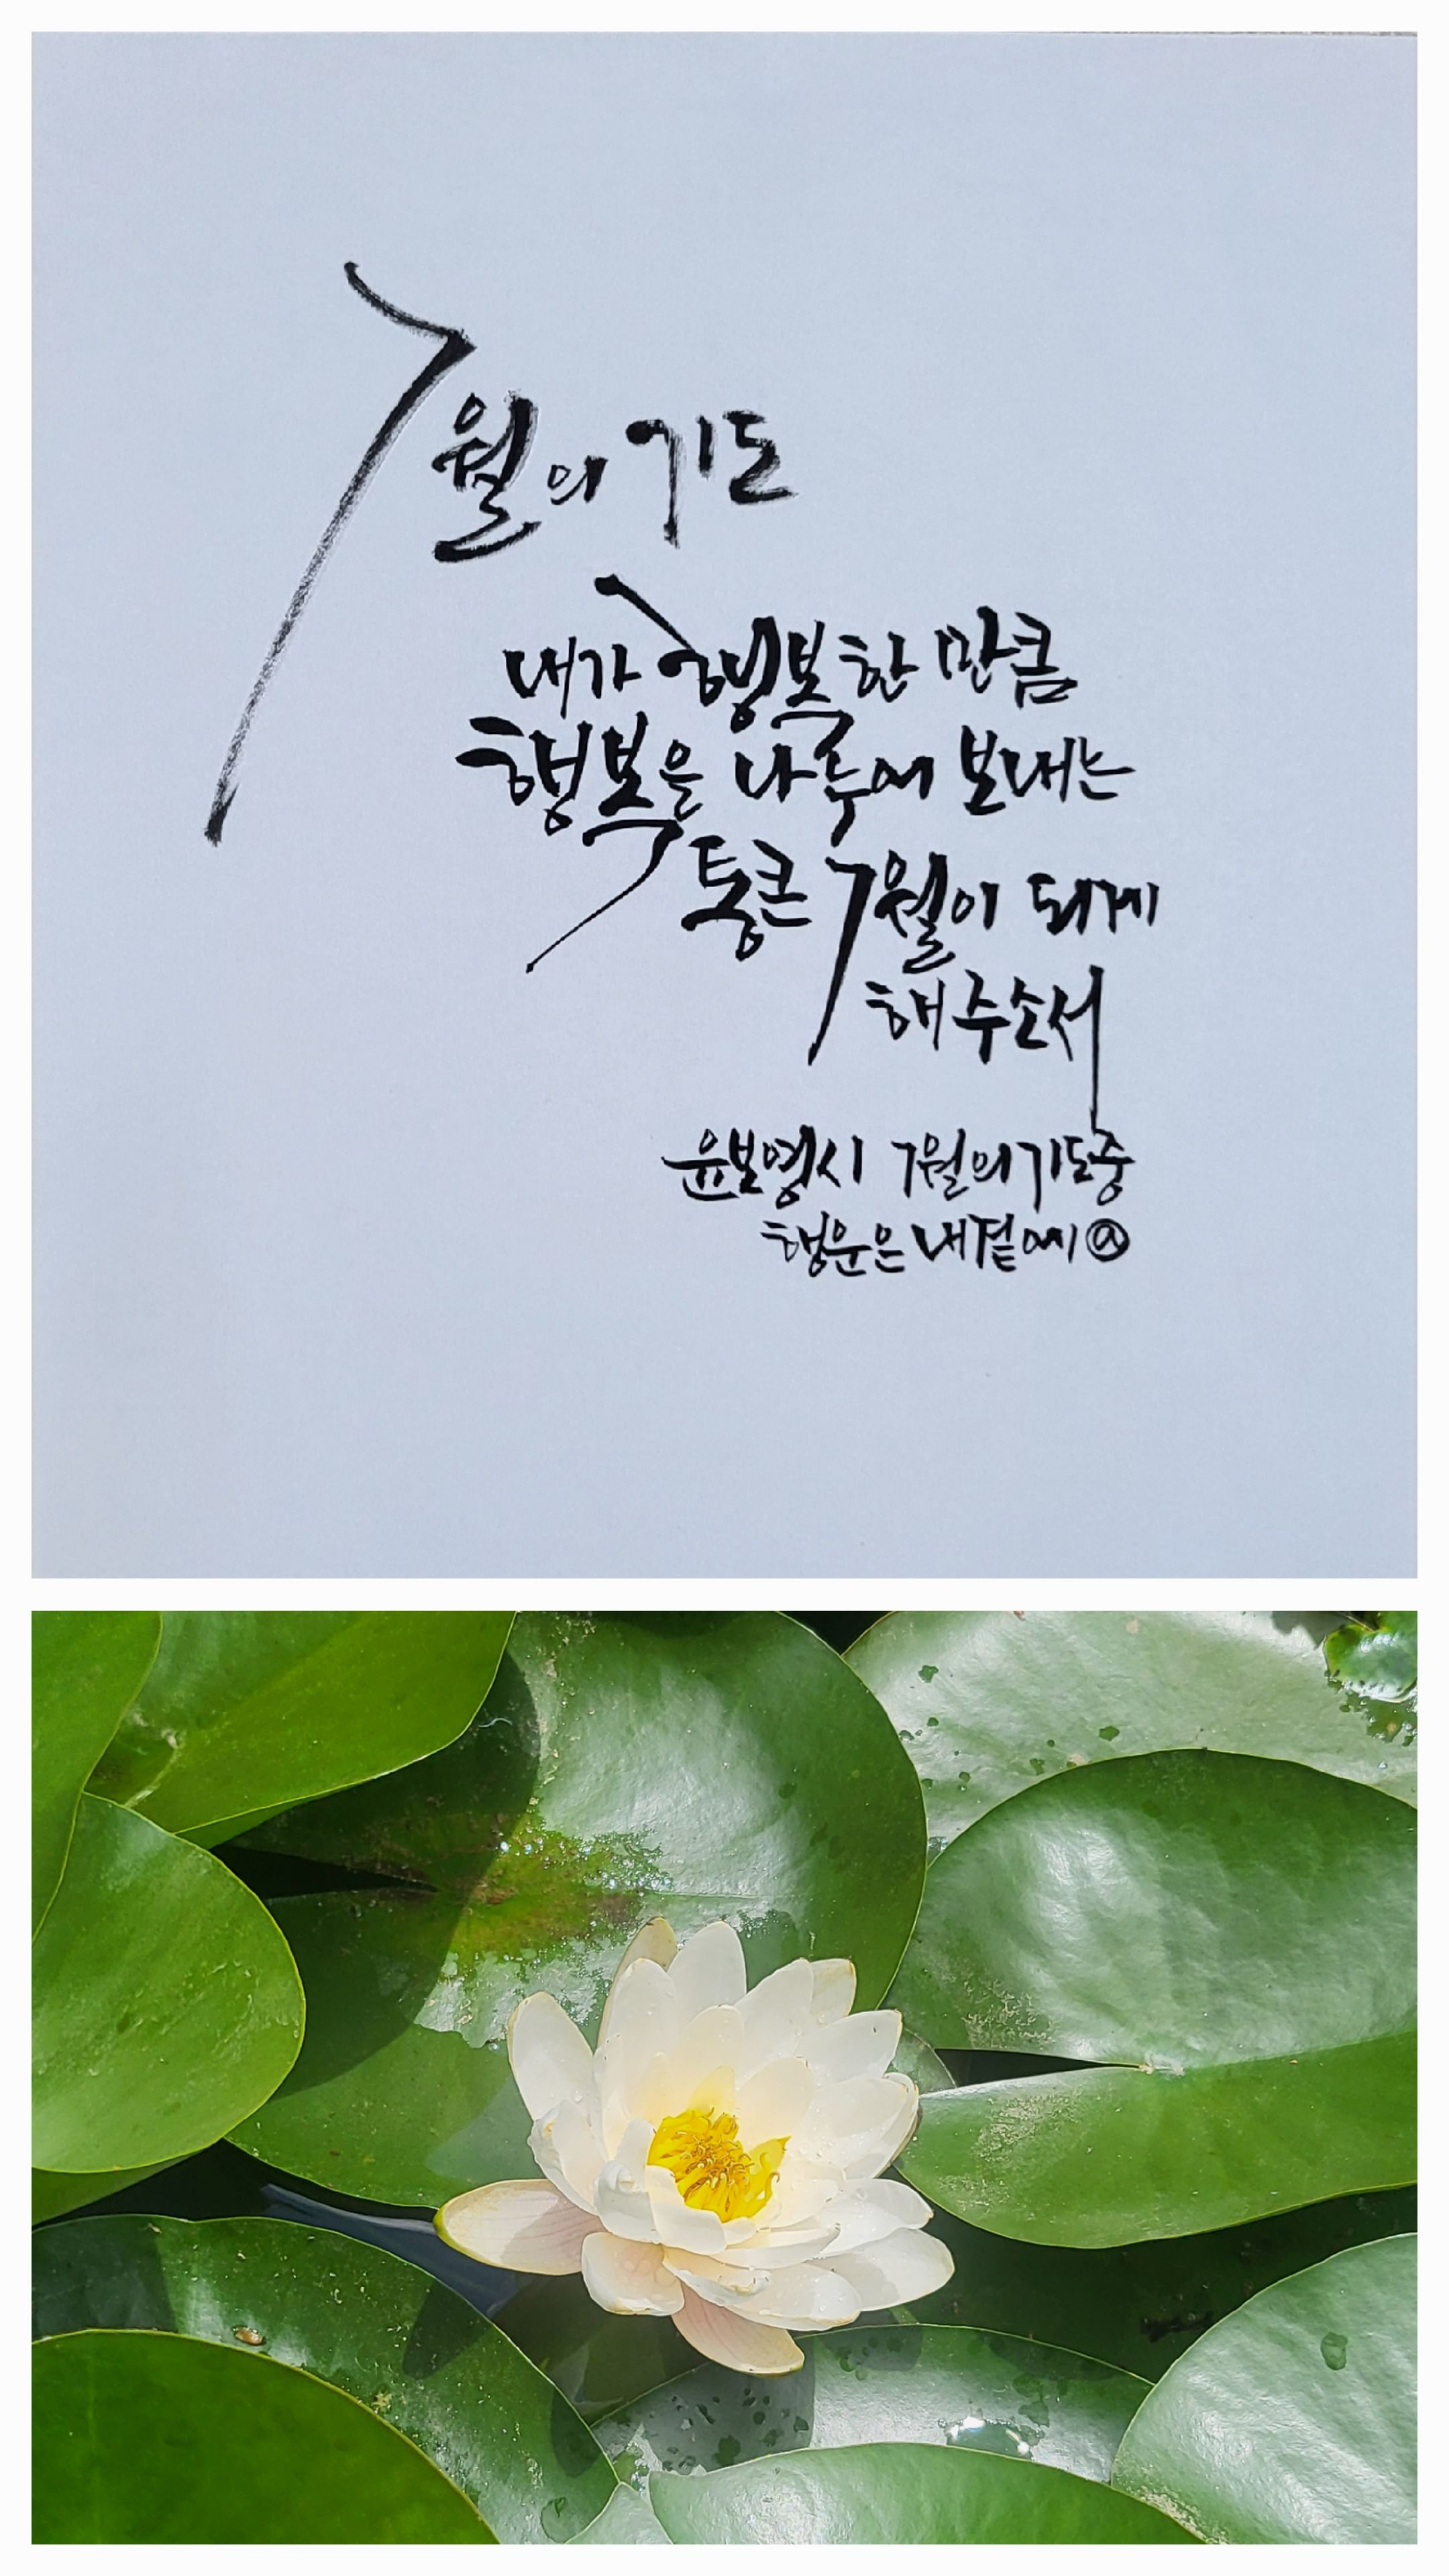 7월의 기도
내가 행복한 만큼
행복을 나누어 보내는
통큰 7월이 되게
해 주소서
윤보영시 7월의 기도 중
행운은 내곁에